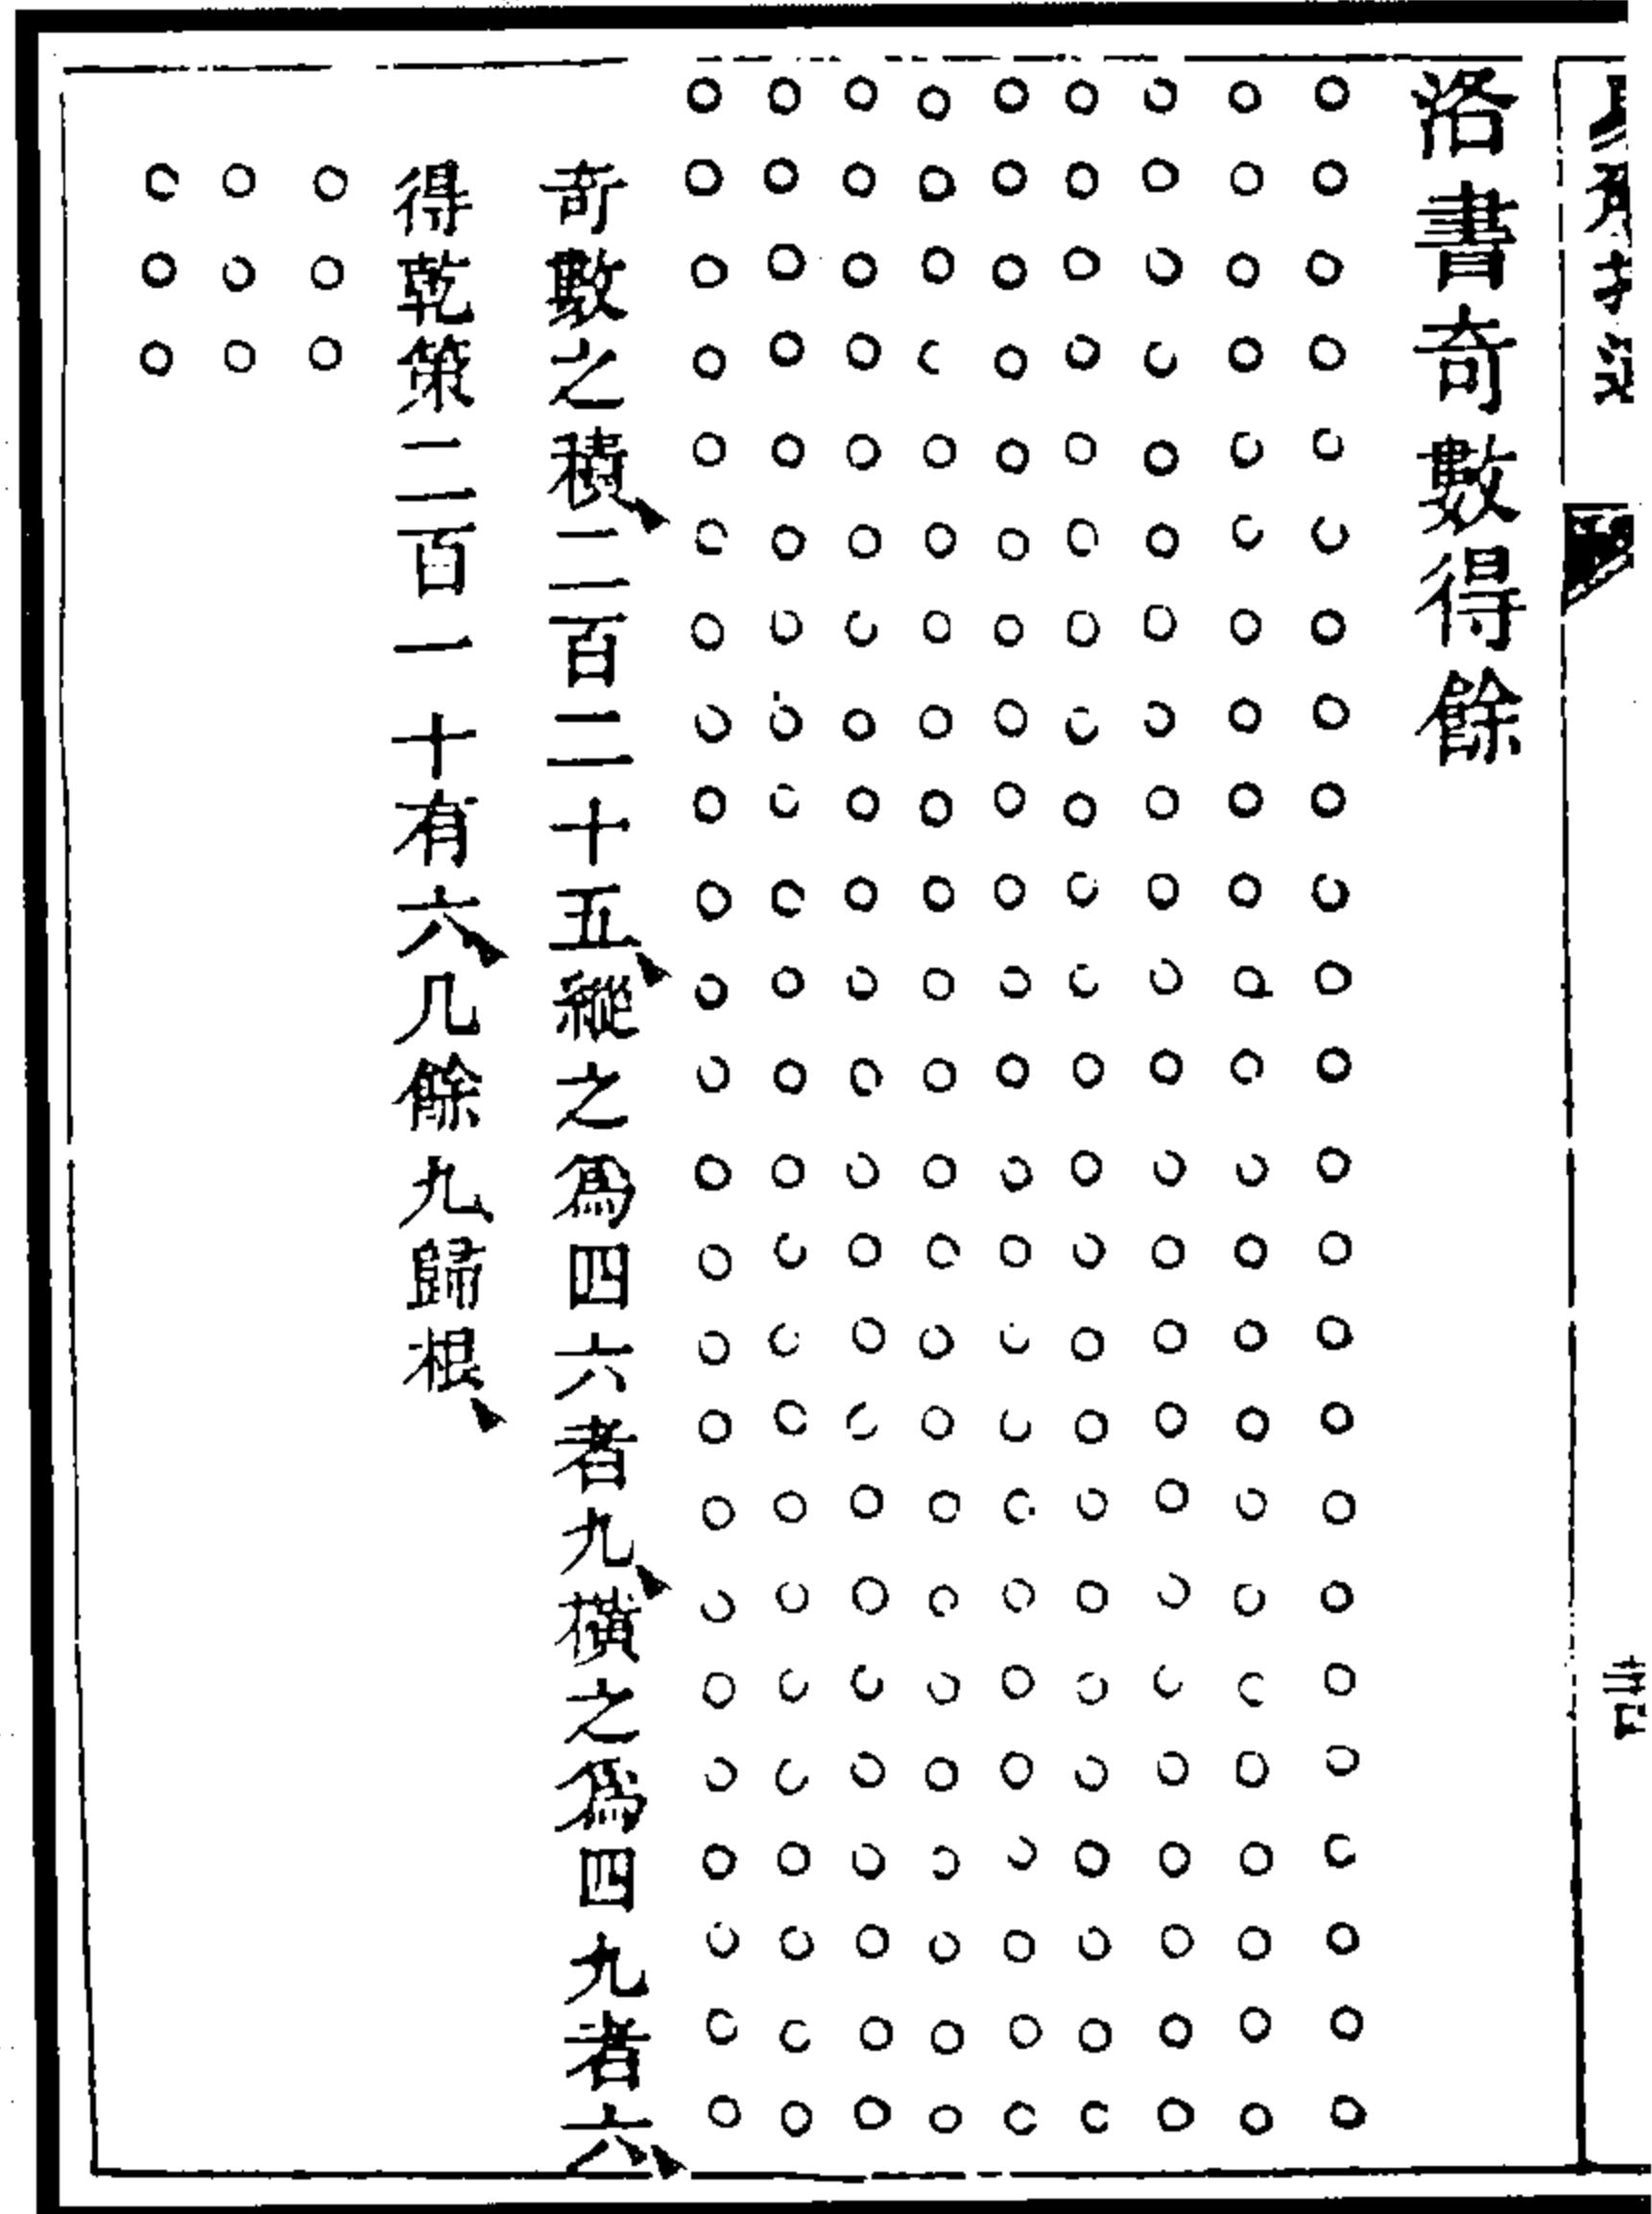 洛書奇數得餘
奇數之積二百二十五縱之爲四六者九橫之爲四九者六
得乾策二百一十有六凡餘九歸根